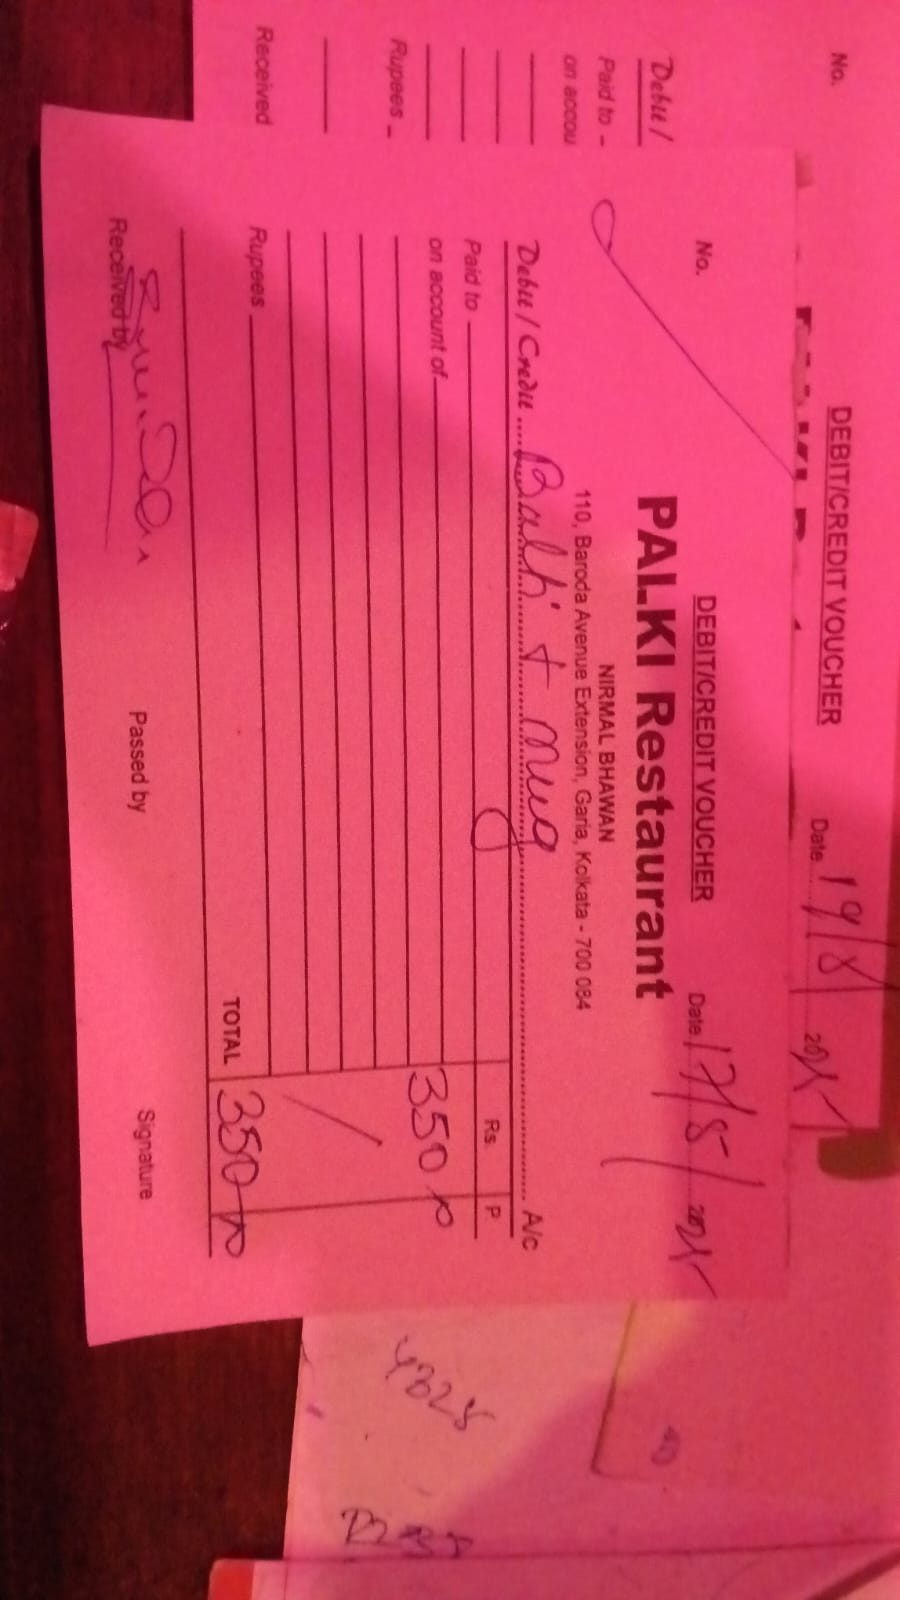 No.
DEBIT/CREDIT VOUCHER
Date 19/8/
Debit /
Paid to
on accou
Rupees
Received
No.
DEBIT/CREDIT VOUCHER
Date 17/8/
PALKI Restaurant
NIRMAL BHAWAN
110, Baroda Avenue Extension, Garia, Kolkata - 700 084
Debit / Credit Balti + mug A/c
Paid to Rs. P.
on account of 350
Rupees TOTAL 350
Received by Passed by Signature
4328